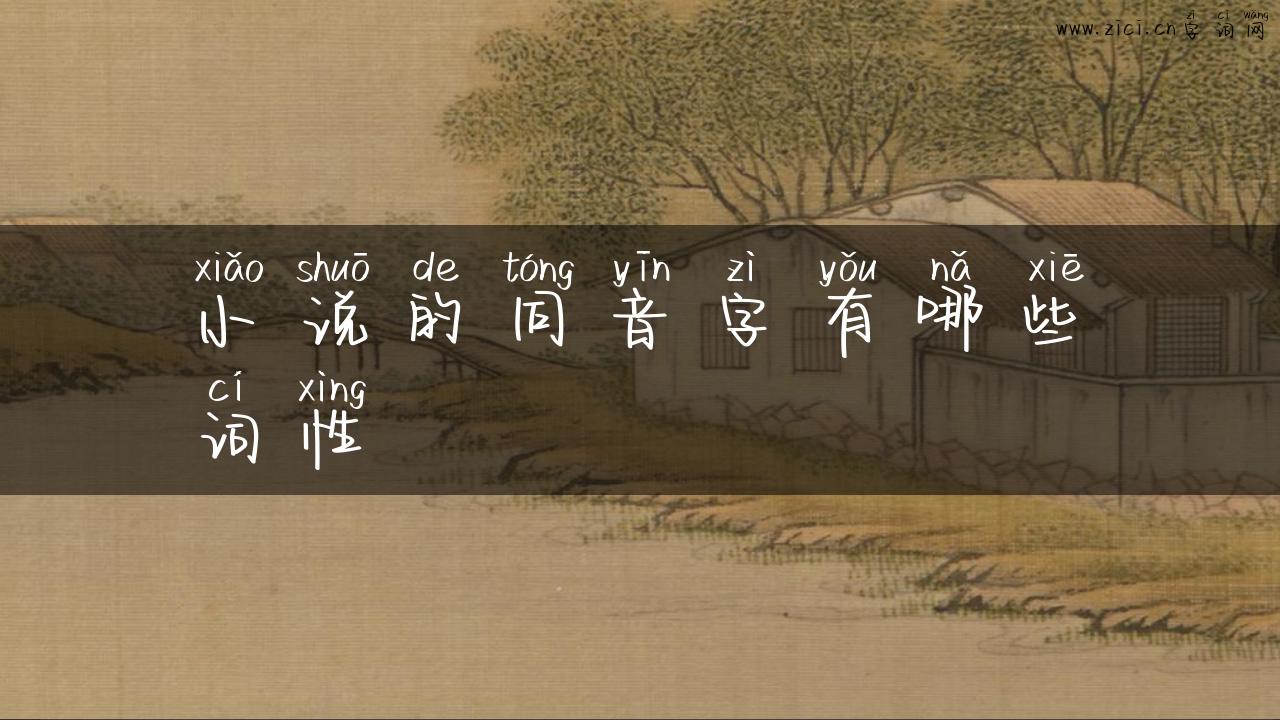 zì cí wǎng
www.zici.cn 字词网
xiǎo shuō de tóng yīn zì yǒu nǎ xiē
小说的同音字有哪些
cí xìng
词性